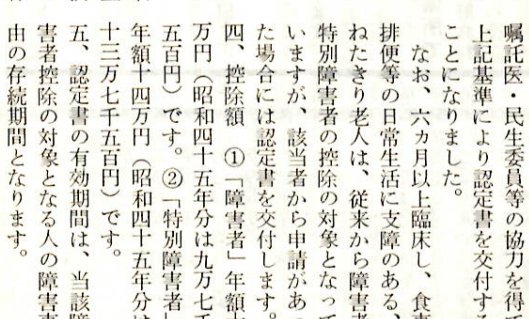 嘱託医・民生委員等の協力を得て
上記基準により認定書を交付する
ことになりました。
なお、六カ月以上臨床し、食事
排便等の日常生活に支障のある、
ねたきり老人は、従来から障害者
特別障害者の控除の対象となって
いますが、該当者から申請があっ
た場合には認定書を交付します。
四、控除額 ①「障害者」年額
万円（昭和四十五年分は九万七千
五百円）です。②「特別障害者」
年額十四万円（昭和四十五年分は
十三万七千五百円）です。
五、認定書の有効期間は、当該障
害者控除の対象となる人の障害事
由の存続期間となります。